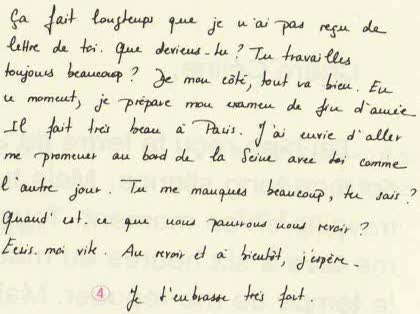 Ça fait longtemps que je n'ai pas reçu de
lettre de toi. Que deviens-tu? Tu travailles
toujours beaucoup? De mon côté, tout va bien. En
ce moment, je prépare mon examen de fin d'année
Il fait très beau à Paris. J'ai envie d'aller
me promener au bord de la Seine avec toi comme
l'autre jour. Tu me manques beaucoup, tu sais?
Quand est-ce que nous pourrons nous revoir?
Ecris-moi vite. Au revoir et à bientôt, j'espère.
④ Je t'embrasse très fort.